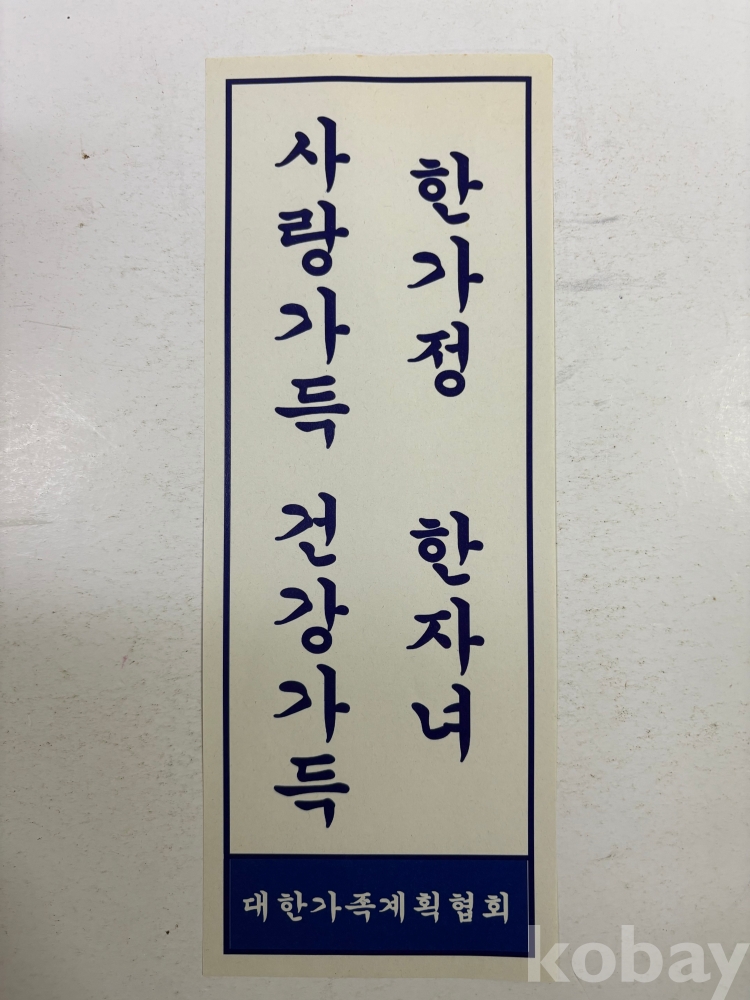 한가정 한자녀
사랑가득 건강가득
대한가족계획협회
kobay